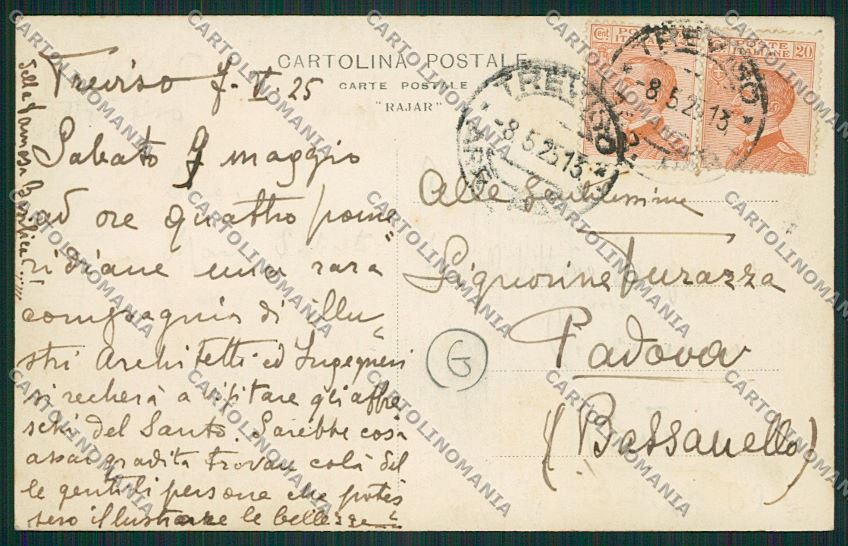 CARTOLINA POSTALE
CARTE POSTALE
"RAJAR"
Treviso 7-V-25
Sabato 9 maggio
ad ore quattro pome=
ridiane una rara
compagnia di illu=
stri Architetti ed Ingegneri
si recherà a visitare gli affre=
schi del Santo. Sarebbe cosa
assai gradita trovar colà del
le gentili persone che potes
sero illustrare le bellezze
della famosa Basilica...!!!
Alle Gentilissime
Signorine Turazza
Padova
(Bassanello)
G
TREVISO
-8.5.25.13
TREVISO
-8.5.25.13
Cent.
POSTE ITALIANE 20
CARTOLINOMANIA